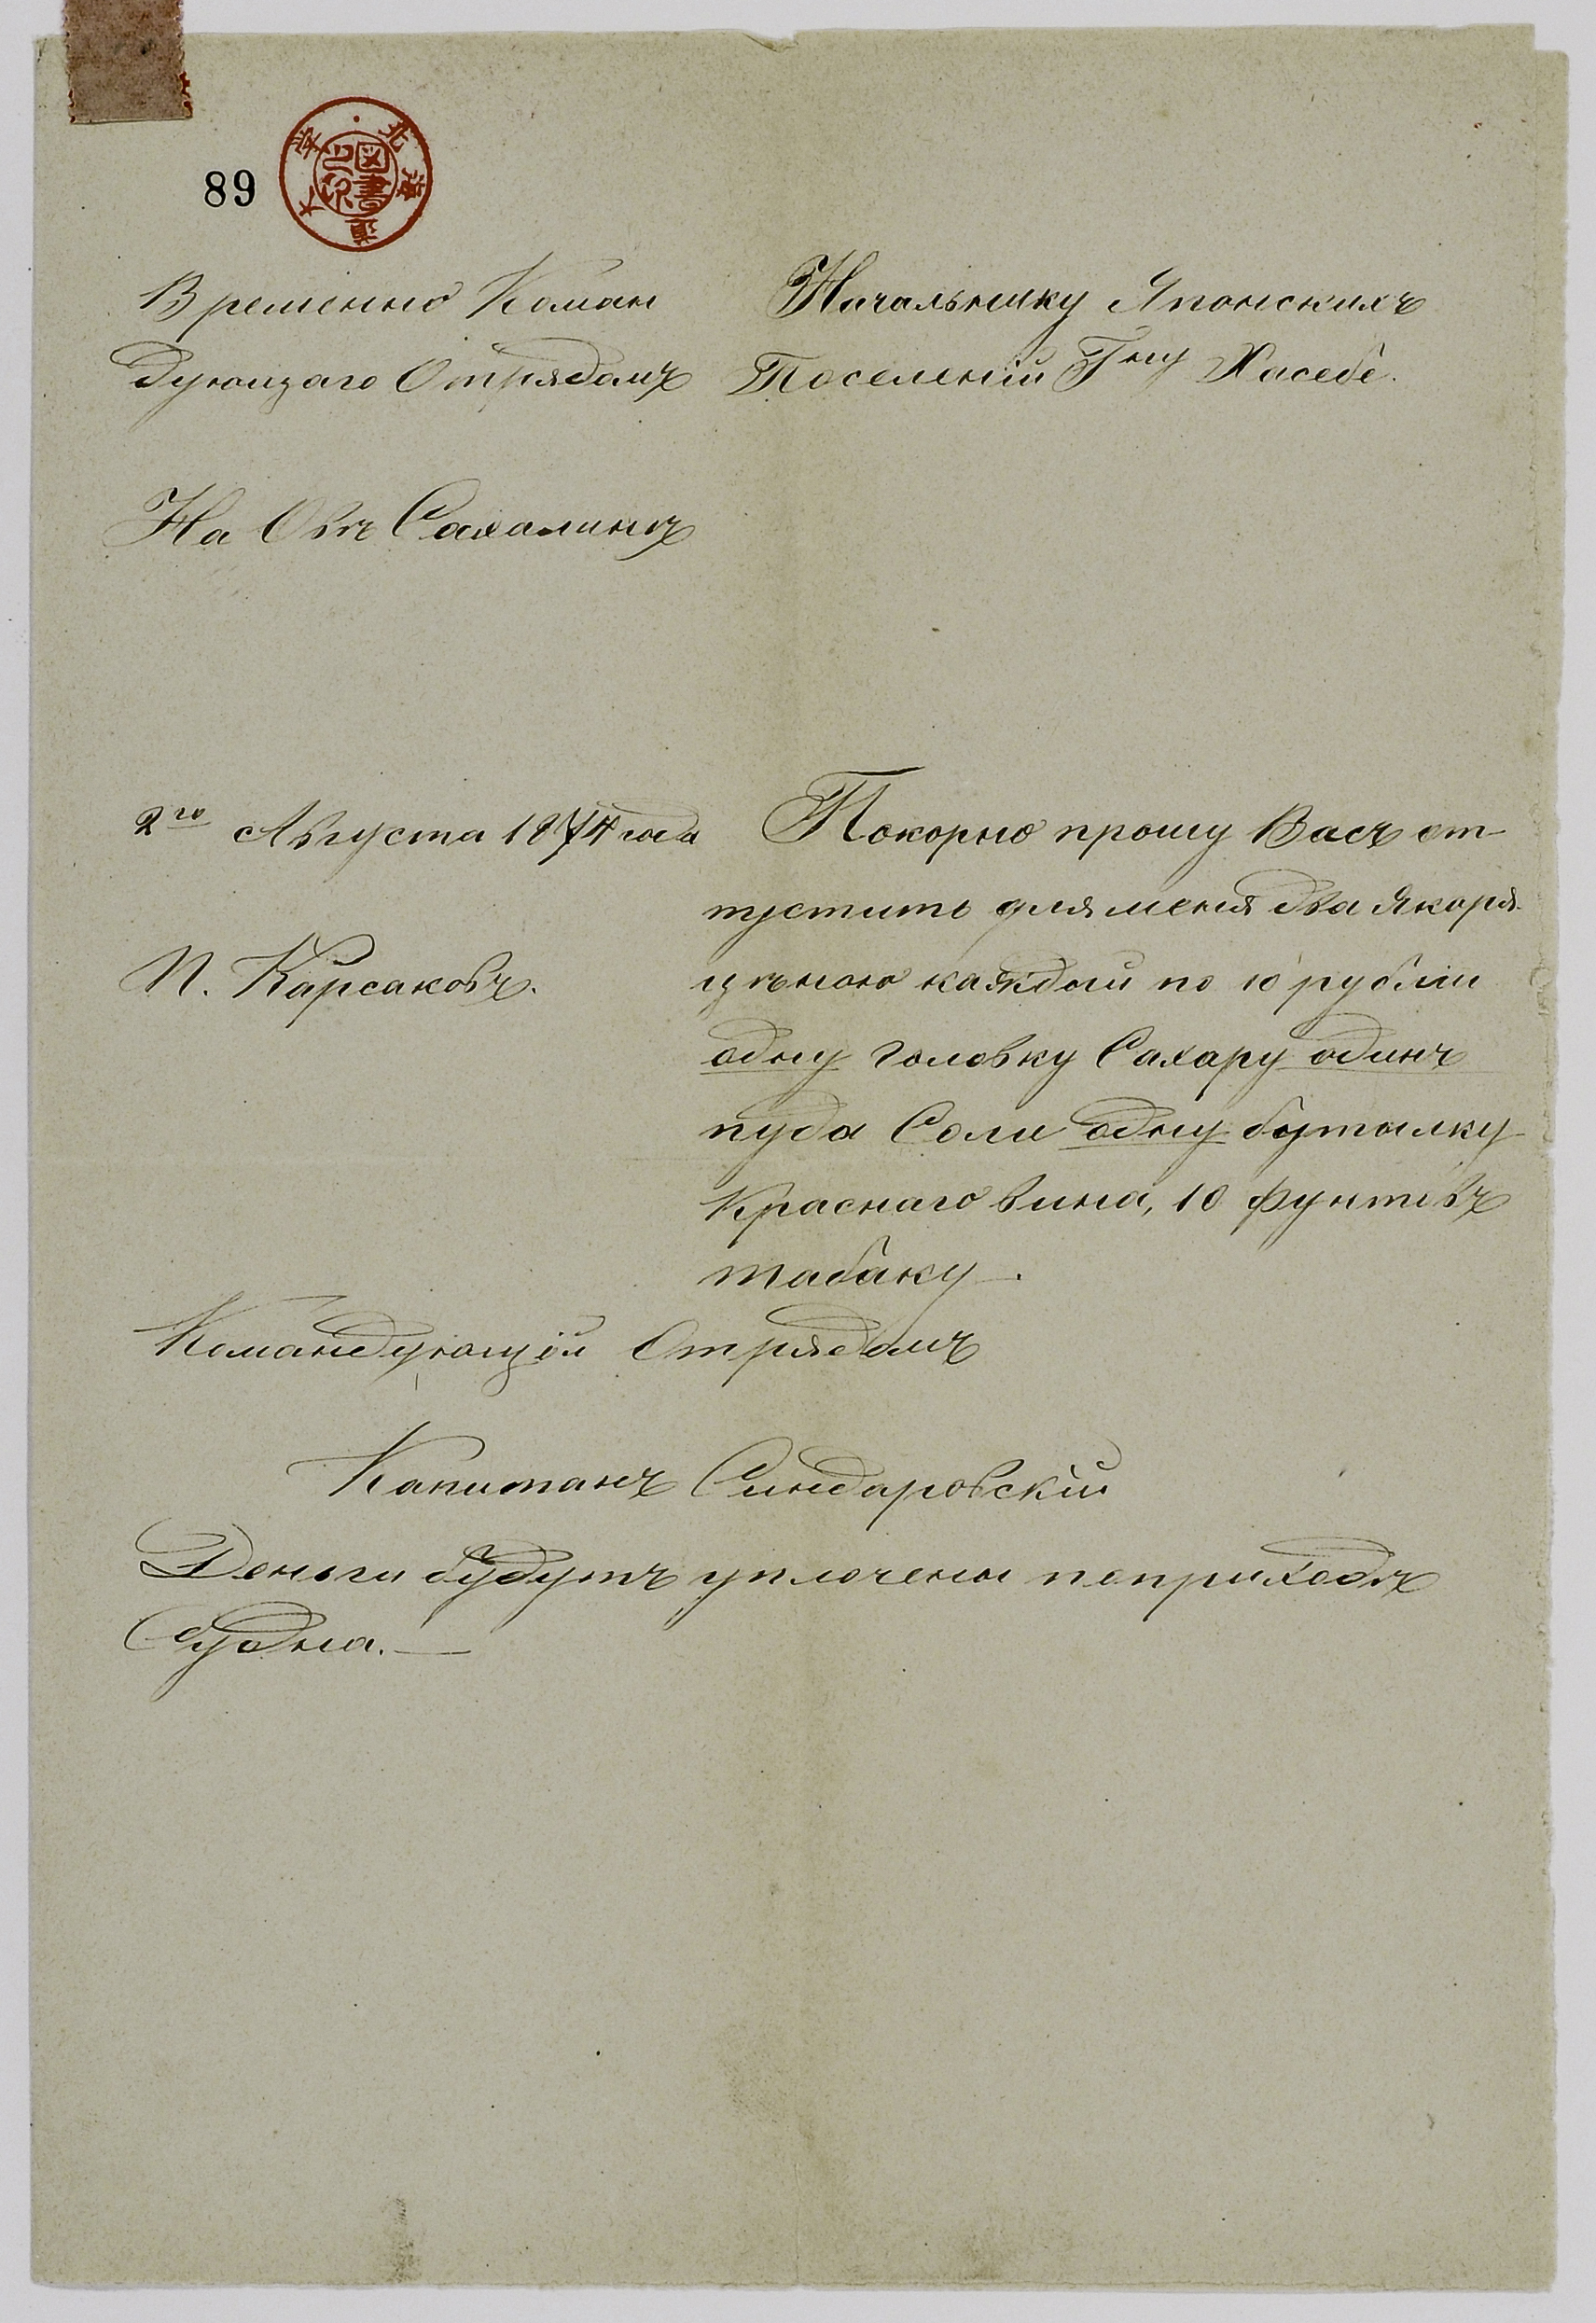 89
北海道大学
図書之印
Временно Коман
дующаго Отрядомъ
На Овѣ Сахалинѣ
2го Августа 1874 года
П. Карсаковъ.
Начальнику Японскихъ
Поселеній Гну Хасебе.
Покорно прошу Васъ от-
пустить для меня два якоря
цѣною каждой по 10 рублій
одну головку Сахару одинъ
пуда Соли одну бутылку
Краснаго вина, 10 фунтовъ
табаку.
Командующій Отрядомъ
Капитанъ Синдаровскій
Деньги будутъ уплочены поприходѣ
Судна.—